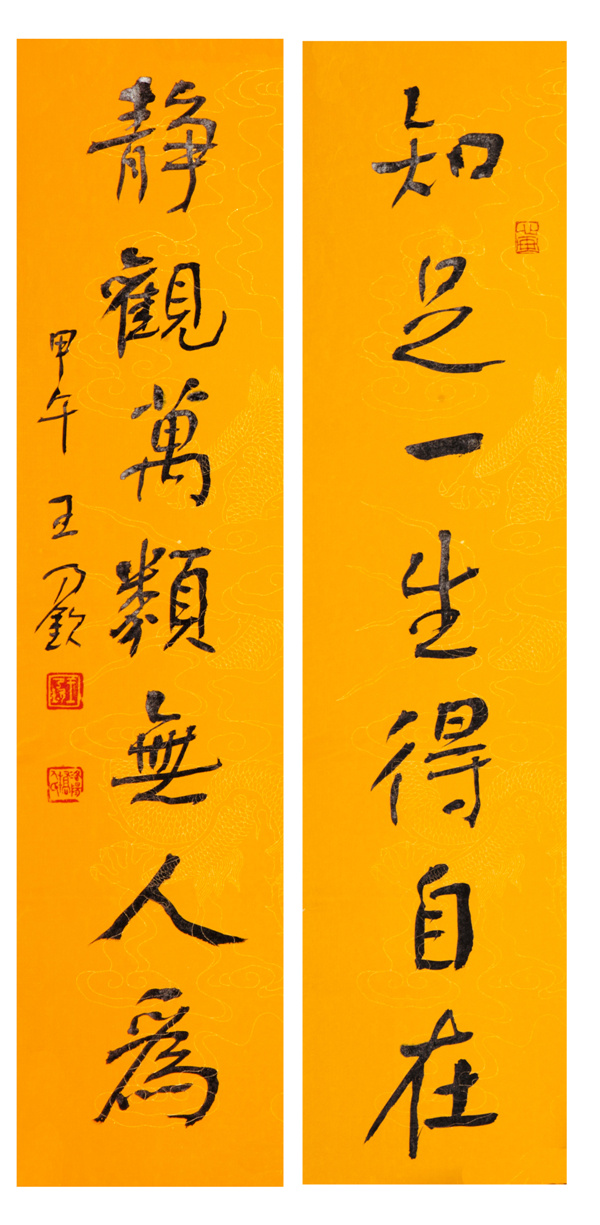 知足一生得自在
靜觀萬類無人為
甲午 王乃欽